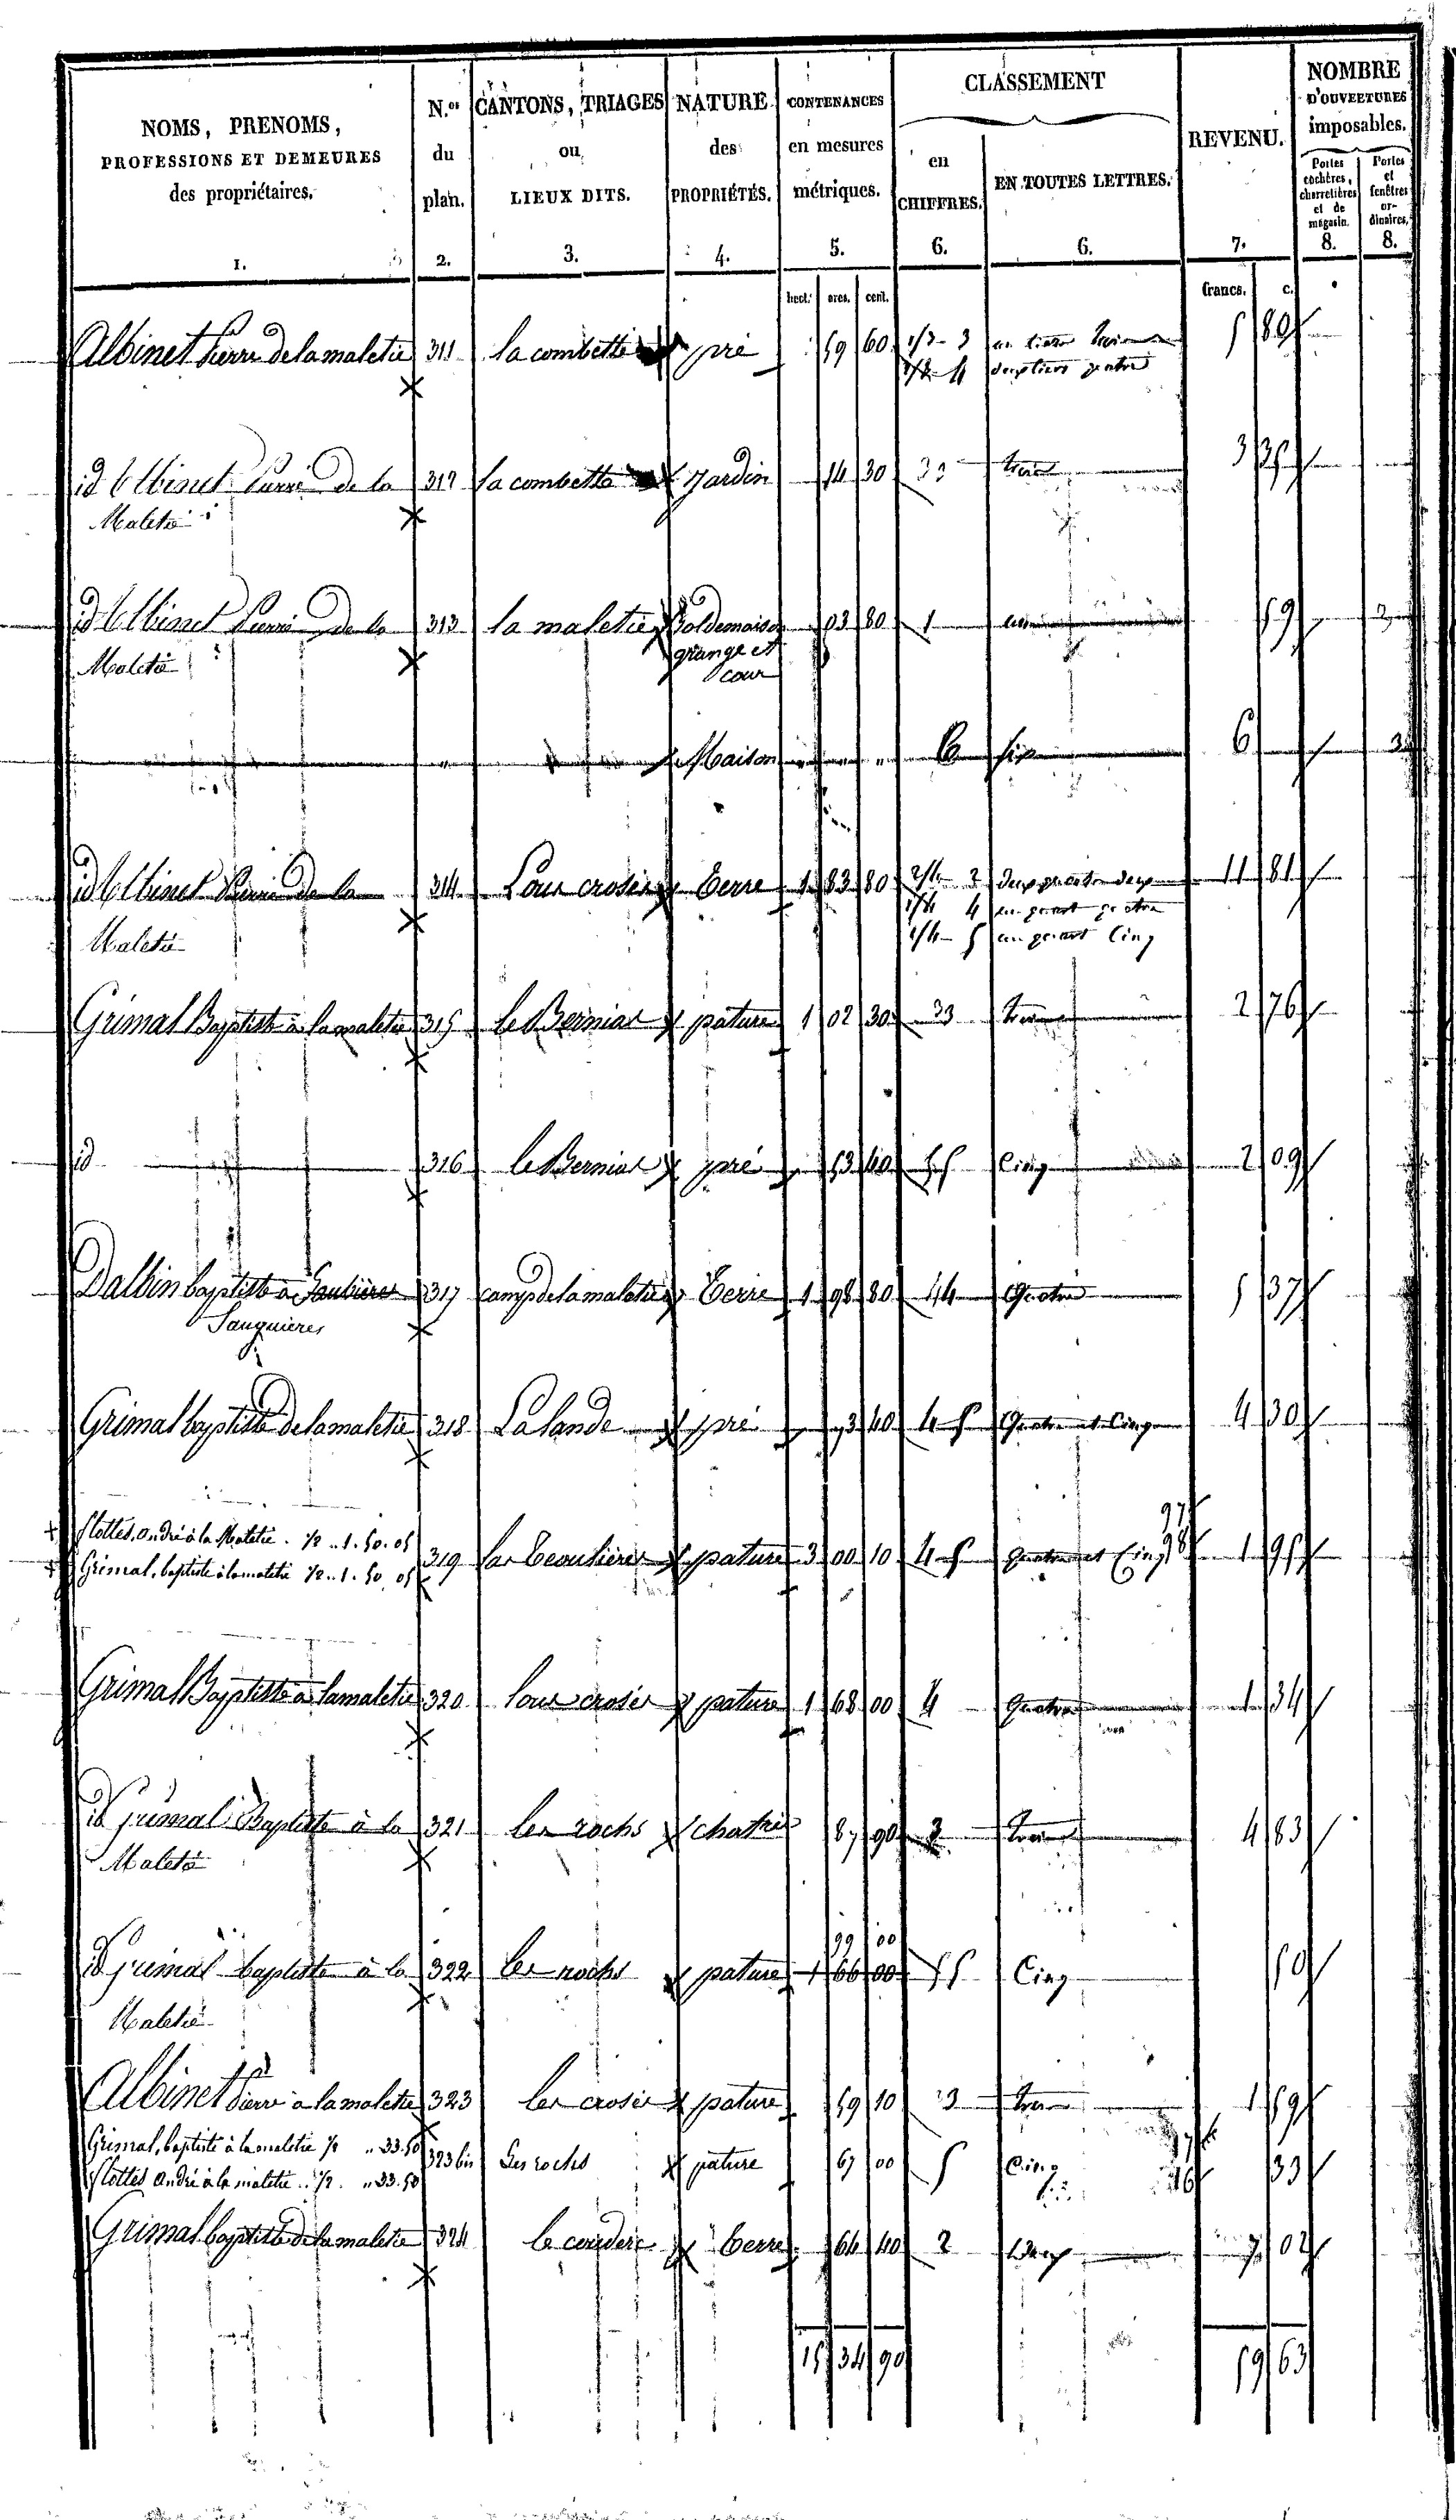 NOMS, PRENOMS, PROFESSIONS ET DEMEURES des propriétaires. N.os du plan. CANTONS, TRIAGES ou LIEUX DITS. NATURE des PROPRIÉTÉS. CONTENANCES en mesures métriques. CLASSEMENT en CHIFFRES. EN TOUTES LETTRES. REVENU. NOMBRE D'OUVERTURES imposables. Portes cochères, charretières et de magasin. Portes et fenêtres ordinaires.
1. 2. 3. 4. 5. 6. 6. 7. 8. 8.
hect. ares. cent. francs. c.
Albinet Pierre de la maletie 311 la combette pré 59 60 1/3 3 un tiers trois 5 80
2/3 4 deux tiers quatre
id Albinet Pierre de la 312 la combette Jardin 14 30 3 trois
Maletie
id Albinet Pierre de la 313 la maletie Sol de maison 03 80 1 59
Maletie grange et
cour
Maison 6 six 6
id Albinet Pierre de la 314 Lous crosés terre 1 83 80 2/4 2 deux quarts deux 11 81
Maletie 1/4 4 un quart quatre
1/4 5 un quart Cinq
Grimal Baptiste à la maletie 315 pature 1 02 30 3 trois 2 76
id 316 pré 53 40 5 Cinq 2 09
Dalbin baptiste à 317 camp de la maletie terre 1 98 80 4 Quatre 5 37
Sauguières
Grimal baptiste de la maletie 318 La lande pré 93 40 4 5 Quatre et Cinq 4 30
Flottes, André à la Maletie. 1/2 .. 1. 50. 05
Grimal, baptiste à la maletie 1/2 .. 1. 50. 05 319 pature 3 00 10 4 5 Quatre et Cinq 1 95
Grimal Baptiste à la maletie 320 Lous crosés pature 1 68 00 4 Quatre 1 34
id Grimal Baptiste à la 321 Les rochs 87 90 3 trois 4 83
Maletie
99 00
id Grimal baptiste à la 322 Les rochs pature 1 66 00 5 Cinq 50
Maletie
Albinet Pierre à la maletie 323 Les crosés pature 59 10 3 trois 1 59
Grimal, baptiste à la maletie 1/2 .. 33. 50 323 bis Les rochs pature 67 00 5 Cinq 33
Flottes André à la maletie .. 1/2 . .. 33. 50
Grimal baptiste de la maletie 324 Le couderc terre 64 40 2 deux 7 02
15 34 90 59 63